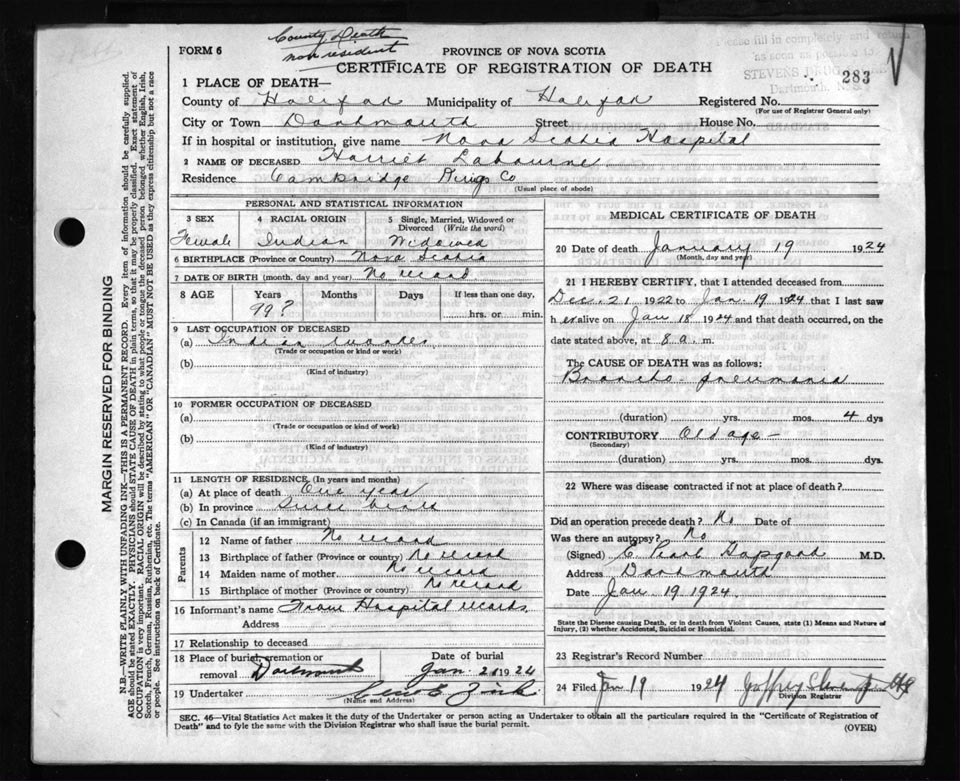 County Death
non resident
FORM 6
PROVINCE OF NOVA SCOTIA
CERTIFICATE OF REGISTRATION OF DEATH
Please fill in completely and return
as soon as possible to
STEVENS DRUG
Dartmouth, N.S.
283
1 PLACE OF DEATH—
County of Halifax Municipality of Halifax Registered No.
(For use of Registrar General only)
City or Town Dartmouth Street House No.
If in hospital or institution, give name Nova Scotia Hospital
2 NAME OF DECEASED Harriet Labourne
Residence Cambridge Kings Co
(Usual place of abode)
PERSONAL AND STATISTICAL INFORMATION
3 SEX 4 RACIAL ORIGIN 5 Single, Married, Widowed or Divorced (Write the word)
Female Indian Widowed
6 BIRTHPLACE (Province or Country) Nova Scotia
7 DATE OF BIRTH (month, day and year) No record
8 AGE Years Months Days If less than one day,
99? hrs. or min.
9 LAST OCCUPATION OF DECEASED
(a) Indian
(Trade or occupation or kind or work)
(b)
(Kind of industry)
10 FORMER OCCUPATION OF DECEASED
(a)
(Trade or occupation or kind of work)
(b)
(Kind of industry)
11 LENGTH OF RESIDENCE (In years and months)
(a) At place of death One year
(b) In province
(c) In Canada (if an immigrant)
Parents
12 Name of father No record
13 Birthplace of father (Province or country) No record
14 Maiden name of mother No record
15 Birthplace of mother (Province or country) No record
16 Informant's name From Hospital records
Address
17 Relationship to deceased
18 Place of burial, cremation or removal Dartmouth Date of burial Jan. 21 1924
19 Undertaker
(Name and Address)
MEDICAL CERTIFICATE OF DEATH
20 Date of death January 19 1924
(Month, day and year)
21 I HEREBY CERTIFY, that I attended deceased from
Dec. 21 1922 to Jan. 19 1924 that I last saw
h er alive on Jan 18 1924 and that death occurred, on the
date stated above, at 8 a. m.
The CAUSE OF DEATH was as follows:
Broncho-pneumonia
(duration) yrs. mos. 4 dys
CONTRIBUTORY Old age -
(Secondary)
(duration) yrs. mos. dys.
22 Where was disease contracted if not at place of death?
Did an operation precede death? No Date of
Was there an autopsy? No
(Signed) C. Pearl Hopgood M.D.
Address Dartmouth
Date Jan. 19 1924.
State the Disease causing Death, or in death from Violent Causes, state (1) Means and Nature of
Injury, (2) whether Accidental, Suicidal or Homicidal.
23 Registrar's Record Number
24 Filed Jan 19 1924
Division Registrar
SEC. 46—Vital Statistics Act makes it the duty of the Undertaker or person acting as Undertaker to obtain all the particulars required in the "Certificate of Registration of
Death" and to fyle the same with the Division Registrar who shall issue the burial permit. (OVER)
MARGIN RESERVED FOR BINDING
N.B.—WRITE PLAINLY WITH UNFADING INK—THIS IS A PERMANENT RECORD. Every item of information should be carefully supplied.
AGE should be stated EXACTLY. PHYSICIANS should STATE CAUSE OF DEATH in plain terms, so that it may be properly classified. Exact statement of
OCCUPATION is very important. RACIAL ORIGIN will be described by stating to what people or tongue the deceased person belonged, whether English, Irish,
Scotch, French, German, Russian, Ruthenian, etc. The terms "AMERICAN" OR "CANADIAN" MUST NOT BE USED as they express citizenship but not a race
or people. See instructions on back of Certificate.